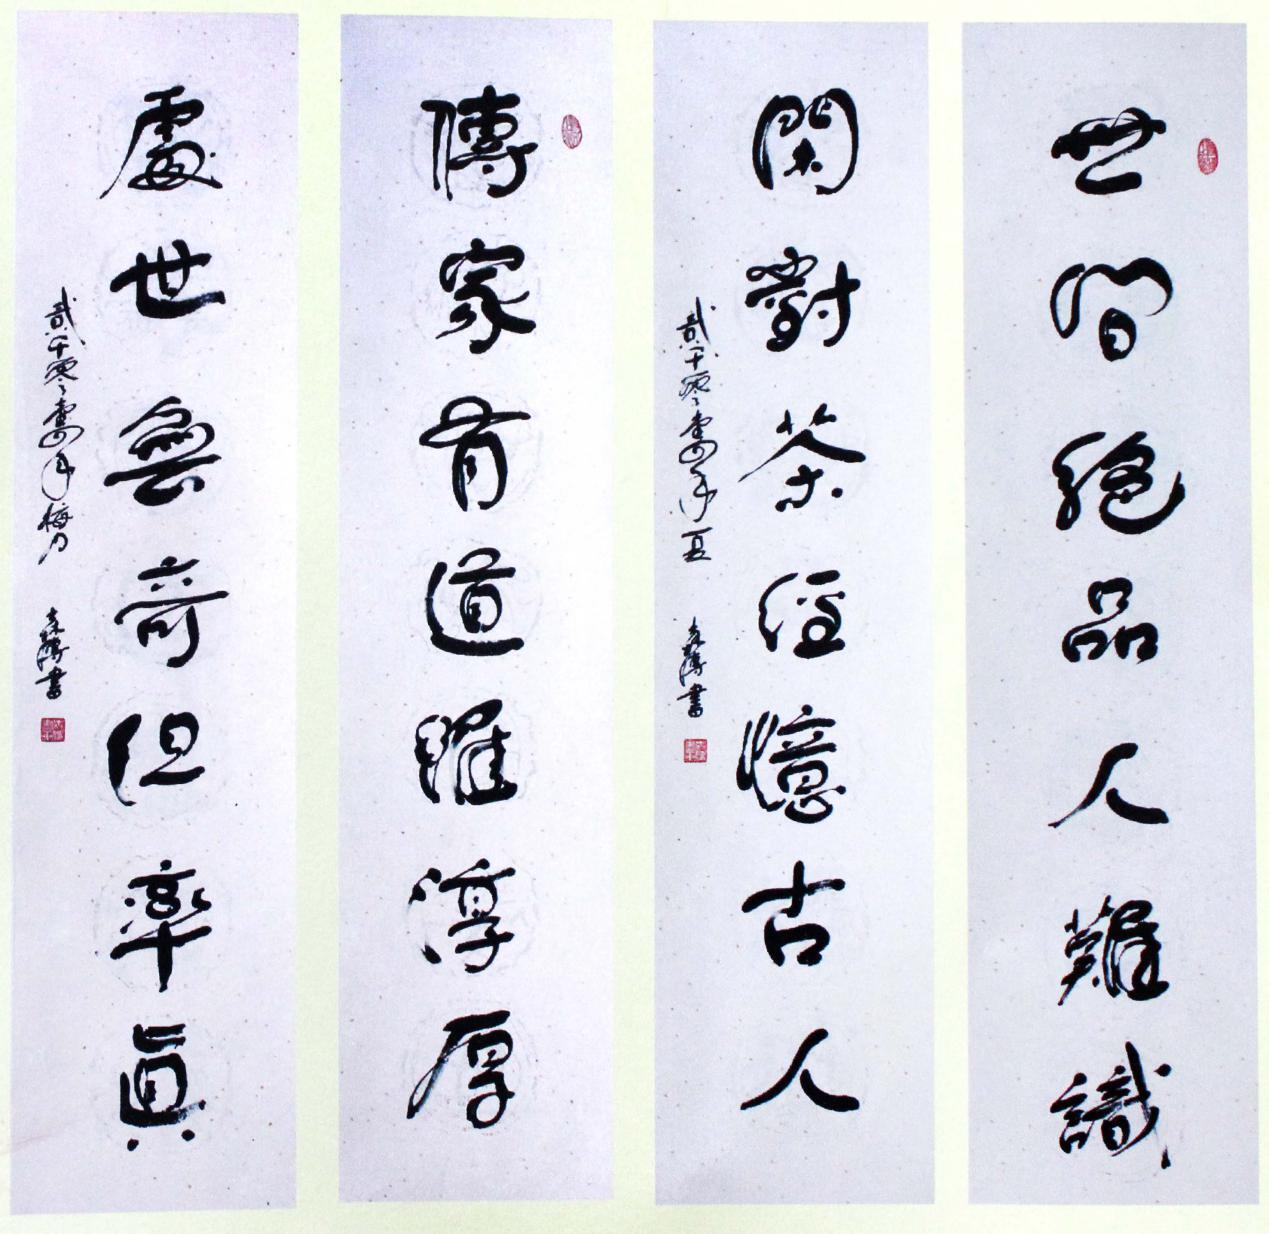 世間絕品人難識
閑對茶經憶古人
貳零零壹年夏
書
傳家有道惟淳厚
處世無奇但率真
貳零零壹年梅月
書